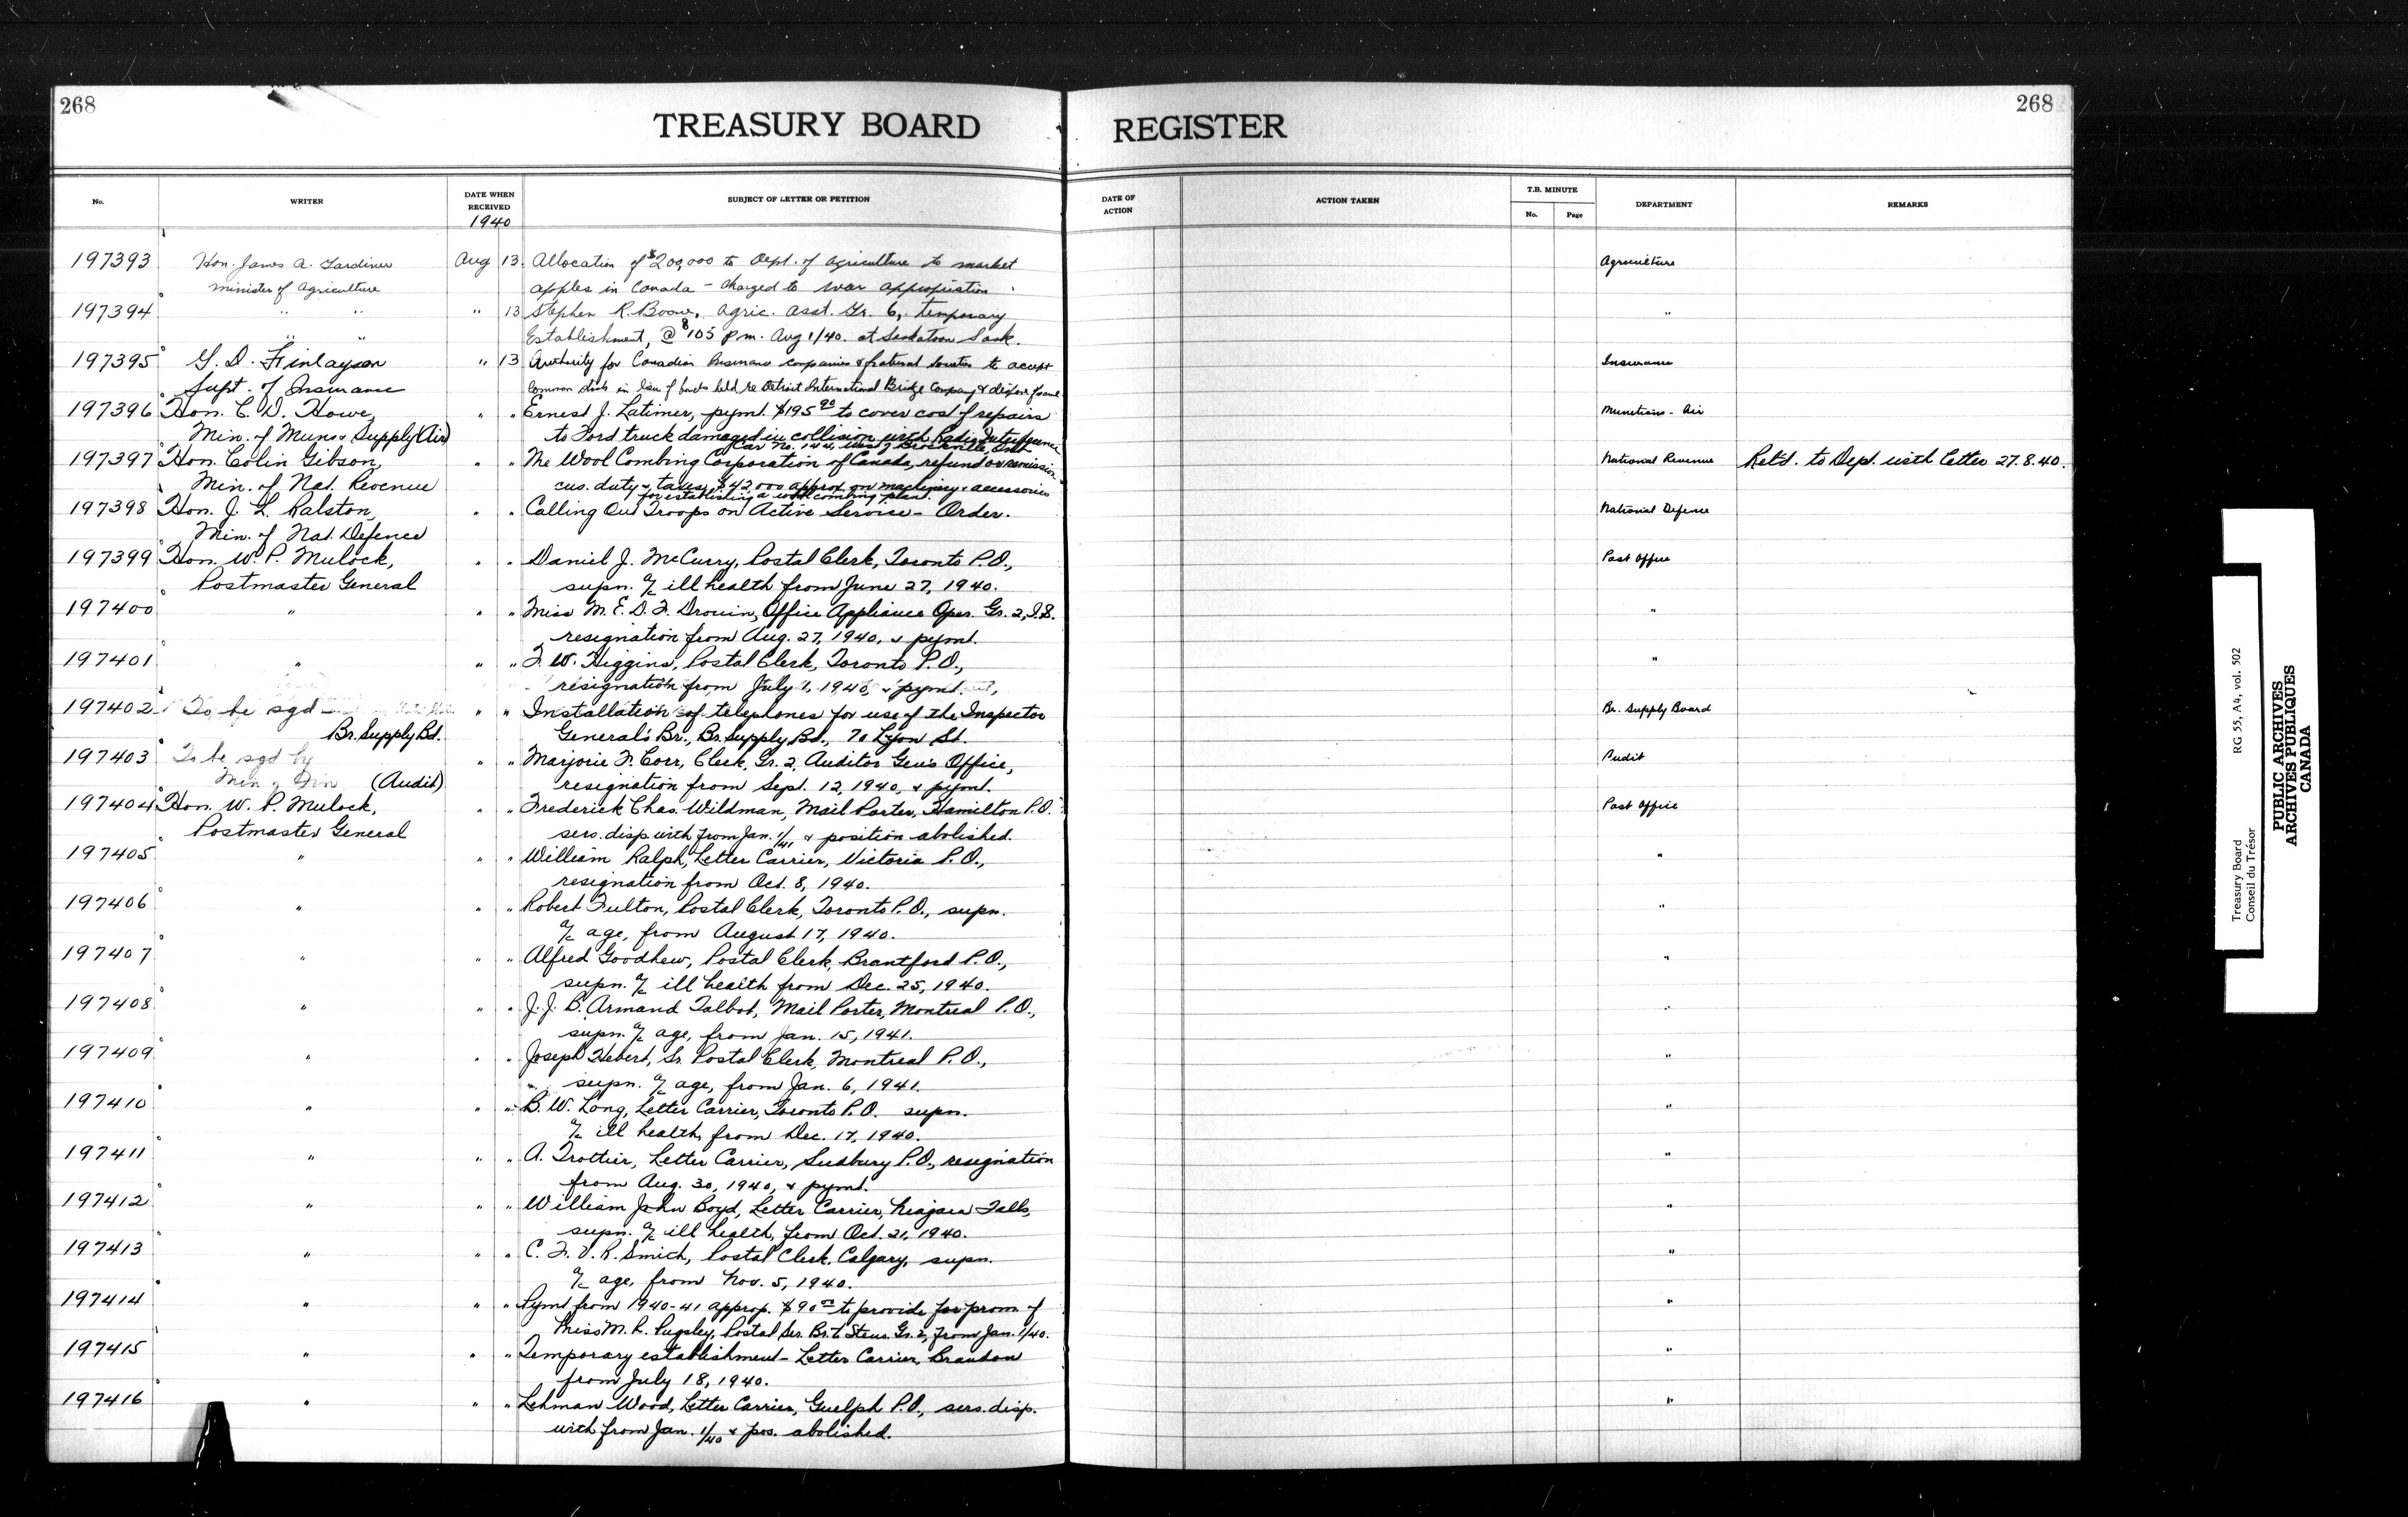 268
TREASURY BOARD REGISTER
268
No.
WRITER
DATE WHEN RECEIVED
1940
SUBJECT OF LETTER OR PETITION
DATE OF ACTION
ACTION TAKEN
T.B. MINUTE
No.
Page
DEPARTMENT
REMARKS
197393 Hon. James A. Gardiner Aug 13 Allocation of $200,000 to Dept. of Agriculture to market Agriculture
Minister of Agriculture apples in Canada - Charged to war appropriation
197394 " " " 13 Stephen R. Boone, Agric. Asst. Gr. 6, temporary "
" " Establishment, @ $105 p.m. Aug 1/40. at Saskatoon Sask.
197395 G. D. Finlayson " 13 Authority for Canadian Insurance companies & fraternal societies to accept Insurance
Supt. of Insurance common stock in lieu of bonds held re Detroit International Bridge Company & dispose of same
197396 Hon. C. D. Howe, " " Ernest J. Latimer, pymt. $195.90 to cover cost of repairs Munitions - Air
Min. of Muns & Supply (Air) to Ford truck damaged in collision with Radio Interference
Car No. 144, West of Brockville, Ont.
197397 Hon. Colin Gibson, " " The Wool Combing Corporation of Canada, refund or remission National Revenue Ret'd. to Dept. with letter 27.8.40.
Min. of Nat. Revenue cus. duty & taxes, $42,000 approx. on machinery & accessories
for establishing a wool combing plant.
197398 Hon. J. L. Ralston, " " Calling Out Troops on Active Service - Order. National Defence
Min. of Nat. Defence
197399 Hon. W. P. Mulock, " " Daniel J. McCurry, Postal Clerk, Toronto P.O., Post Office
Postmaster General supn. a/c ill health from June 27, 1940.
197400 " " " Miss M. E. D. F. Drouin, Office Appliance Oper. Gr. 2, I.S. "
resignation from Aug. 27, 1940, & pymt.
197401 " " " F. W. Higgins, Postal Clerk, Toronto P.O., "
resignation from July 1, 1940, & pymt.
197402 To be sgd " " Installation of telephones for use of the Inspector Br. Supply Board
Br. Supply Bd. General's Br., Br. Supply Bd., 70 Lyon St.
197403 To be sgd by " " Marjorie F. Corr, Clerk, Gr. 2, Auditor Gen's Office, Audit
Min of Fin (Audit) resignation from Sept. 12, 1940, & pymt.
197404 Hon. W. P. Mulock, " " Frederick Chas. Wildman, Mail Porter, Hamilton P.O. Post Office
Postmaster General sers. disp. with from Jan. 1/41 & position abolished.
197405 " " " William Ralph, Letter Carrier, Victoria P.O., "
resignation from Oct. 8, 1940.
197406 " " " Robert Fulton, Postal Clerk, Toronto P.O., supn. "
a/c age, from August 17, 1940.
197407 " " " Alfred Goodhew, Postal Clerk, Brantford P.O., "
supn. a/c ill health from Dec. 25, 1940.
197408 " " " J. J. B. Armand Talbot, Mail Porter, Montreal P.O., "
supn. a/c age, from Jan. 15, 1941.
197409 " " " Joseph Hebert, Sr. Postal Clerk, Montreal P.O., "
supn. a/c age, from Jan. 6, 1941.
197410 " " " B. W. Long, Letter Carrier, Toronto P.O. supn. "
a/c ill health, from Dec. 17, 1940.
197411 " " " A. Trottier, Letter Carrier, Sudbury P.O., resignation "
from Aug. 30, 1940, & pymt.
197412 " " " William John Boyd, Letter Carrier, Niagara Falls, "
supn. a/c ill health, from Oct. 21, 1940.
197413 " " " C. F. V. R. Smith, Postal Clerk, Calgary, supn. "
a/c age, from Nov. 5, 1940.
197414 " " " Pymt from 1940-41 approp. $90.00 to provide for prom. of "
Miss M. R. Pugsley, Postal Ser. Br. to Steno. Gr. 2, from Jan. 1/40.
197415 " " " Temporary establishment - Letter Carrier, Brandon "
from July 18, 1940.
197416 " " " Lehman Wood, Letter Carrier, Guelph P.O., sers. disp. "
with from Jan. 1/40 & pos. abolished.
Treasury Board RG 55, A4, vol. 502
Conseil du Trésor
PUBLIC ARCHIVES
ARCHIVES PUBLIQUES
CANADA